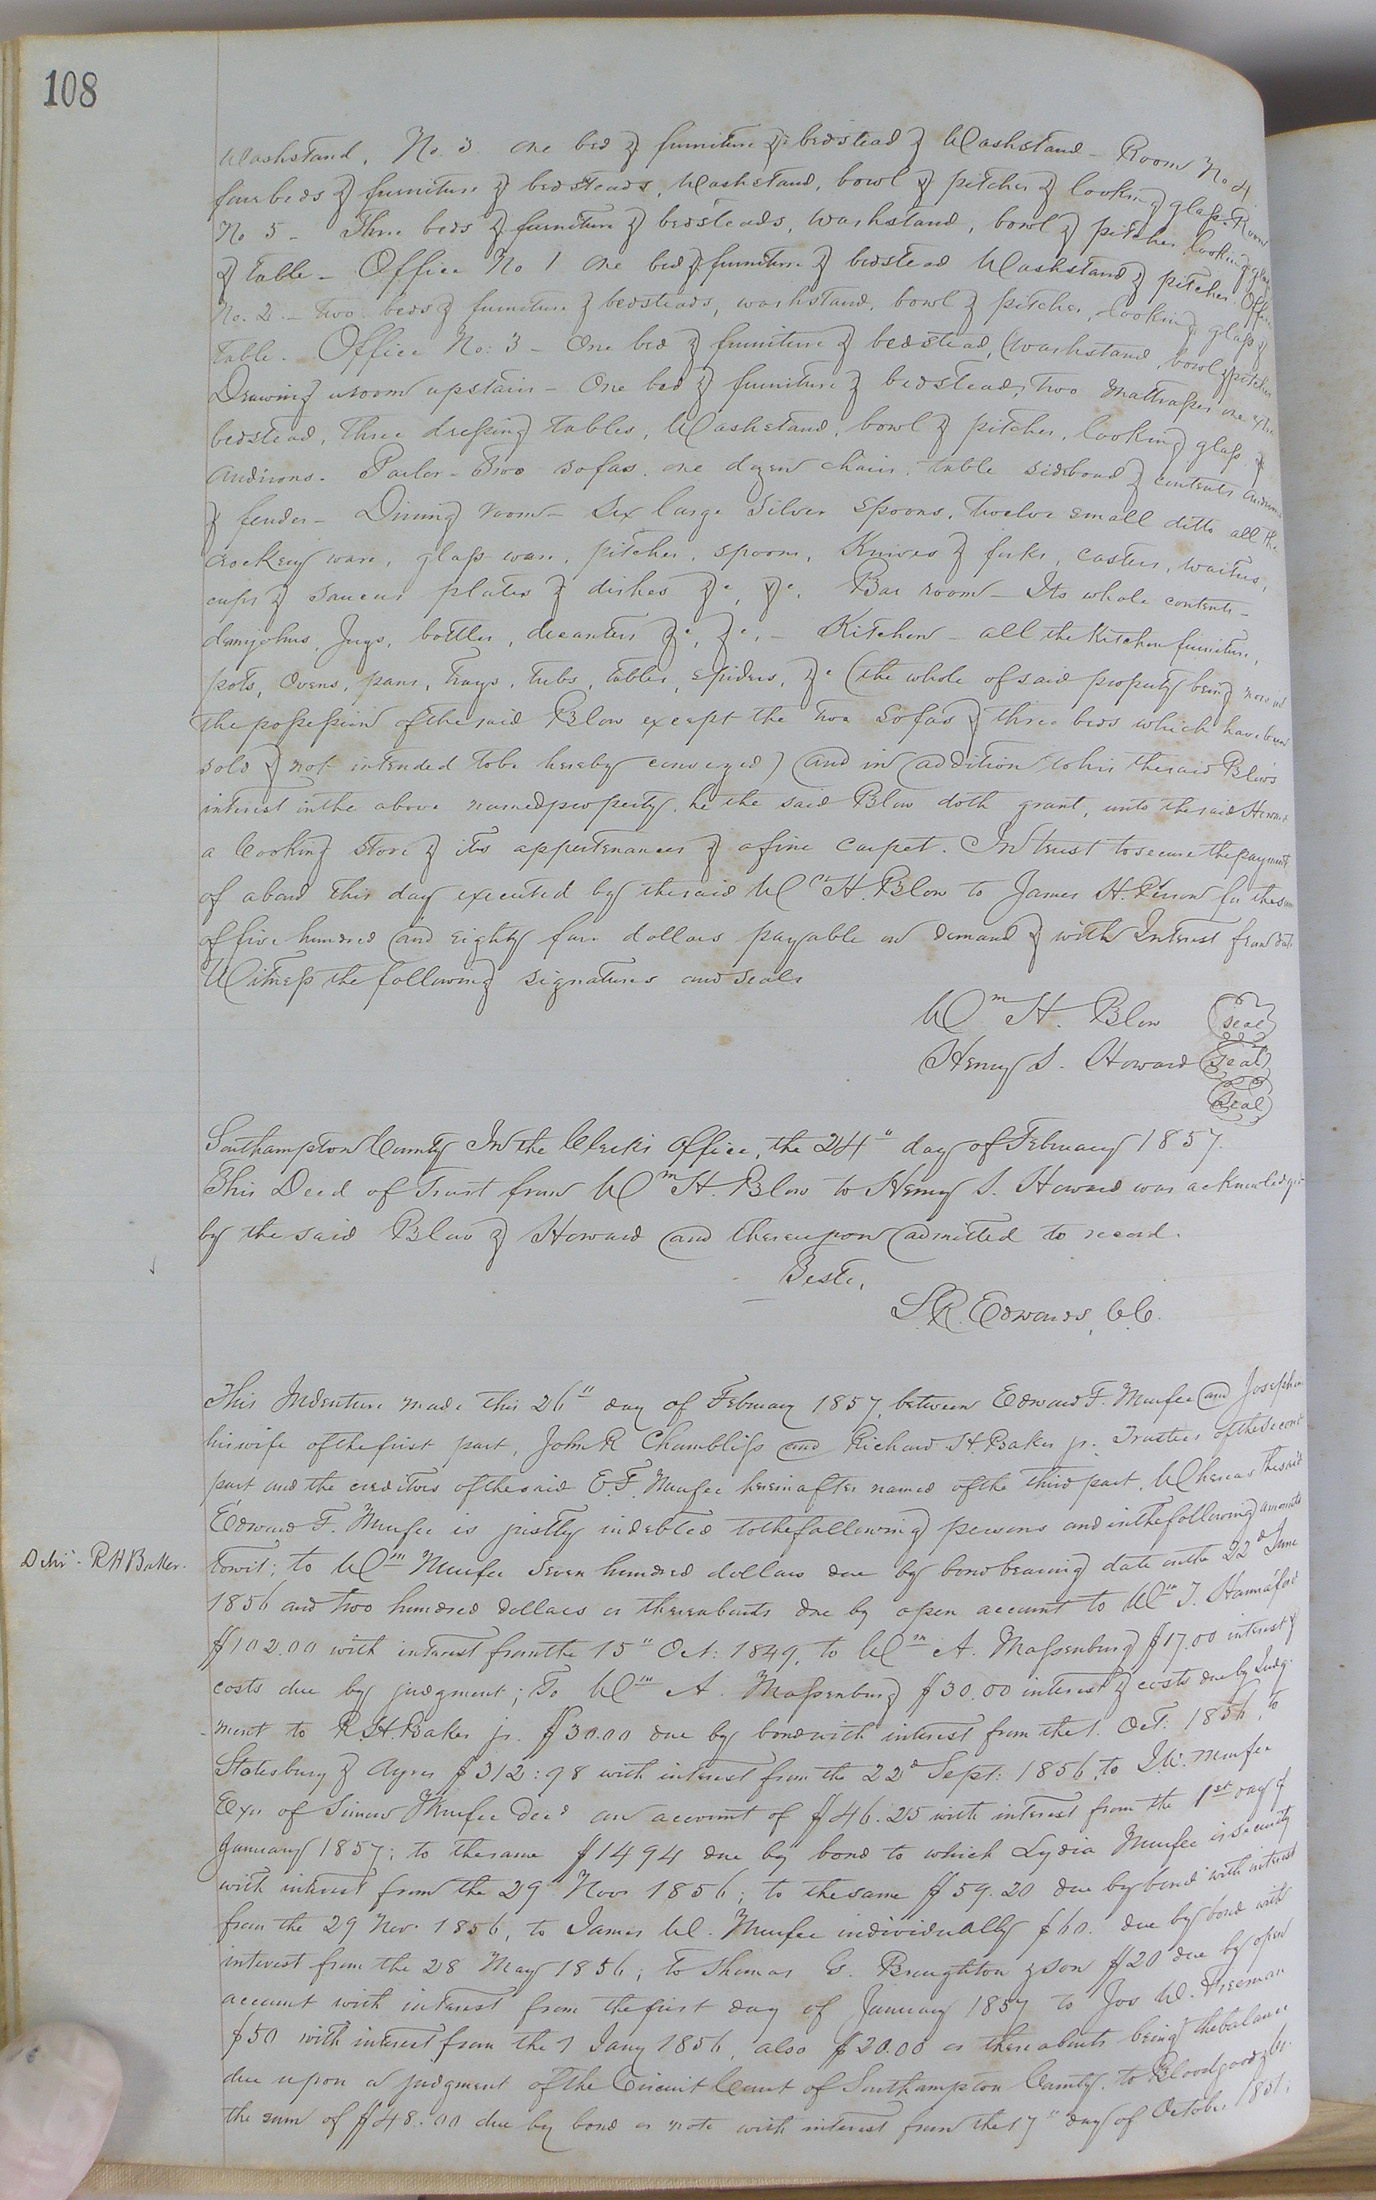 108
Washstand, No. 3 one bed & furniture & bedstead & Washstand – Room No 4
four beds & furniture & bedsteads, Washstand, bowl & pitcher & looking glass – Room
No 5 – Three beds & furniture & bedsteads, washstand, bowl & pitcher looking glass
& table – Office No 1 one bed & furniture & bedstead Washstand & pitcher. Office
No. 2 – two beds & furniture & bedsteads, washstand, bowl & pitcher, looking glass &
table. Office No: 3 – One bed & furniture & bedstead, Washstand, bowl & pitcher
Drawing room upstairs – One bed & furniture & bedstead, two Mattrasses one
bedstead, three dressing tables, Washstand, bowl & pitcher, looking glass &
andirons. Parlor – Two sofas, one dozen chairs, table sideboard & contents andirons
& fender – Dining room – Six large silver spoons, twelve small ditto all the
crockery ware, glass ware, pitcher, spoons, Knives & forks, castors, waiters,
cups & saucers plates & dishes &c, &c, Bar room – Its whole contents –
demijohns, Jugs, bottles, decanters &c, &c, – Kitchen – all the Kitchen furniture,
pots, Ovens, pans, trays, tubs, tables, spiders, &c (the whole of said property being now in
the possession of the said Blow except the two Sofas & three beds which have been
sold & not intended to be hereby conveyed) and in addition to his the said Blow's
interest in the above named property, he the said Blow doth grant, unto the said Howard
a Cooking Stove & its appertenances & a fine carpet. In trust to secure the payment
of a bond this day executed by the said Wm H. Blow to James H. for the sum
of five hundred and eighty four dollars payable on demand & with Interest from date
Witness the following signatures and seals
Wm H. Blow (seal)
Henry S. Howard (seal)
(seal)
Southampton County In the Clerk's Office, the 24" day of February 1857.
This Deed of Trust from Wm H. Blow to Henry S. Howard was acknowledged
by the said Blow & Howard and thereupon admitted to record.
Teste,
L. R. Edwards, C.C.
This Indenture made this 26" day of February 1857, between Edward F. Murfee and Josephine
his wife of the first part, John R Chambliss and Richard H. Baker jr. Trustees of the second
part and the creditors of the said E. F. Murfee hereinafter named of the third part, Whereas the said
Edward F. Murfee is justly indebted to the following persons and in the following amounts
Deliv'd R H Baker.
towit; to Wm Murfee Seven hundred dollars due by bond bearing date on the 22d June
1856 and two hundred dollars or thereabouts due by open account to Wm J. Hannaford
$102.00 with interest from the 15" Oct: 1849, to Wm A. Massenburg $17.00 interest &
costs due by judgment; To Wm A. Massenburg $30.00 interest & costs due by Judg-
-ment to R. H. Baker jr. $30.00 due by bond with interest from the 1. Oct. 1856, to
Statesbury & Ayres $312:98 with interest from the 22d Sept: 1856, to J. W. Murfee
Exor of Simon Murfee Decd an account of $46.25 with interest from the 1st day of
January 1857; to the same $1494 due by bond to which Lydia Murfee is security
with interest from the 29 Novr 1856; to the same $59.20 due by bond with interest
from the 29 Nov. 1856, to James W. Murfee individually $60. due by bond with
interest from the 28 May 1856; to Thomas G. Broughton & son $20 due by open
account with interest from the first day of January 1857 to Jos W. Freeman
$50 with interest from the 1 Jany 1856, also $20.00 or thereabouts being the balance
due upon a judgment of the Circuit Court of Southampton County, to Bloodgood & Co.
the sum of $48.00 due by bond or note with interest from the 17" day of October 1851;